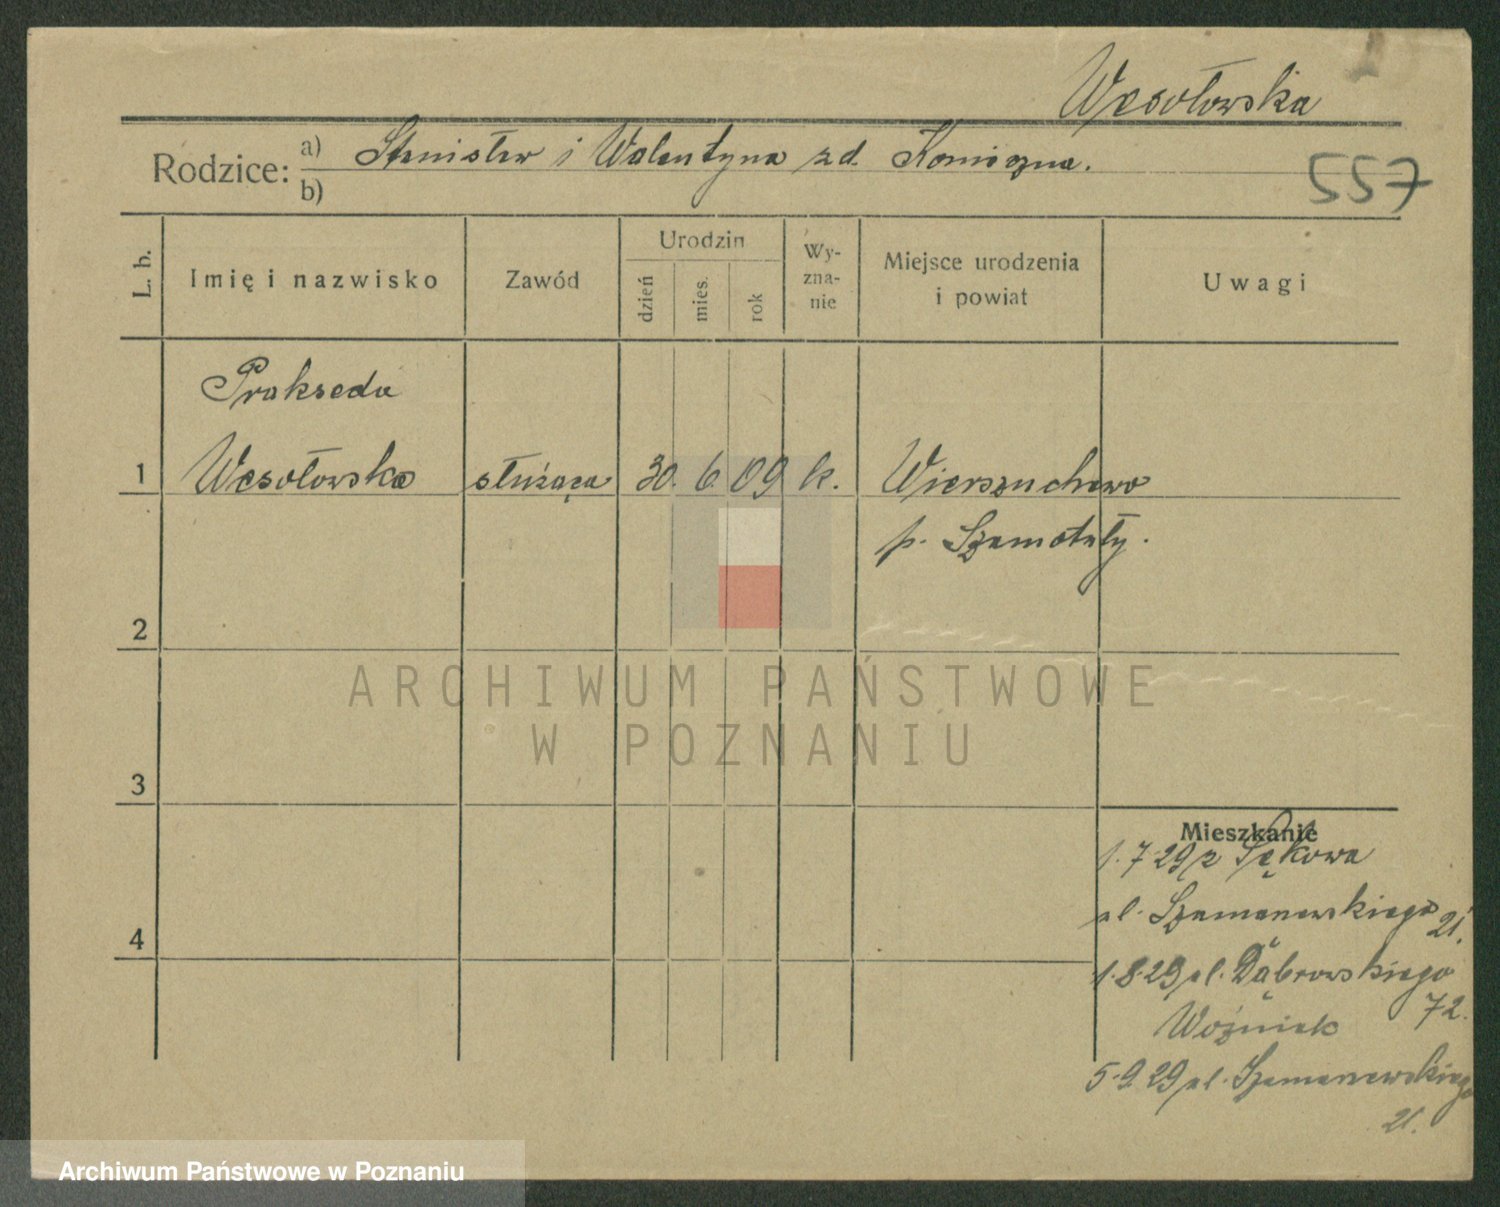 Wesołowska
Rodzice: a) Stanisław i Walentyna zd. Konieczna.
b)
557
L. b.
Imię i nazwisko
Zawód
Urodzin
dzień
mies.
rok
Wy-
zna-
nie
Miejsce urodzenia
i powiat
Uwagi
Prakseda
1 Wesołowska służąca 30. 6. 09 k. Wierzchowo
p. Szamotuły.
2
3
4
ARCHIWUM PAŃSTWOWE
W POZNANIU
Mieszkanie
1.7.29 z Sękowa
ul. Szamarzewskiego 21.
1.8.29 ul. Dąbrowskiego
72.
Woźniak
5.9.29 ul. Szamarzewskiego
21.
Archiwum Państwowe w Poznaniu